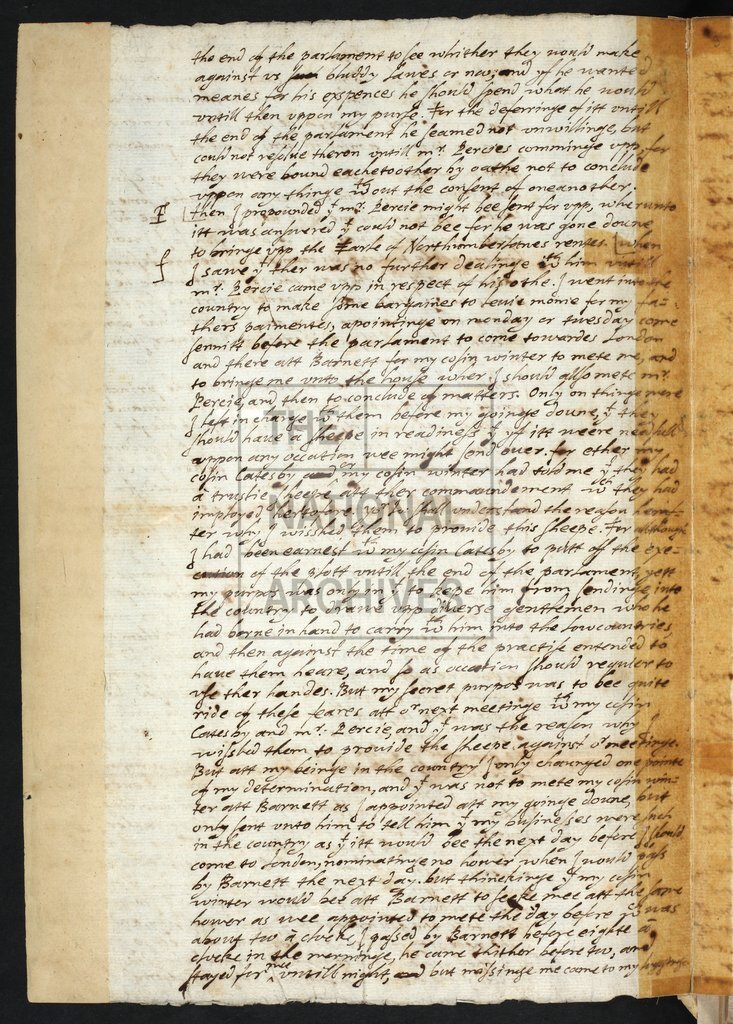 the end of the parlament to see whither they would make
against vs such bluddy lawes or noe, and yf he wanted
meanes for his expences he should spend what he would
vntill then vppon my purse. For the deferringe of itt vntill
the end of the parlament he seamed not vnwillinge, but
could not resolue theron vntill mr. Percies comminge vpp, for
they were bound eache to other by oathe not to conclude
vppon any thinge wthout the consent of one another.
then I propounded yt mr. Percie might bee sent for vpp, wherunto
itt was answered yt could not bee for he was gone doune
to bringe vpp the Earle of Northumberlanes rentes. when
I sawe yt ther was no further dealinge wth him vntill
mr. Percie came vpp in respect of his othe. I went into the
country to make some bargaines to leuie monie for my fa-
thers paimentes, apointinge on monday or twesday come
sennitt before the parlament to come towardes London
and there att Barnett for my cosin winter to mete me, and
to bringe me vnto the house wher I should allso mete mr.
Percie, and then to conclude of matters. Only on thinge more
I left in charge wth them before my goinge doune, yt they
should haue a sheepe in readiness yt yf itt weere needfull
vppon any occation wee might send ouer. for ether my
cosin Catesby or my cosin winter had told me yt they had
a trustie sheepe att they commaundement wch they had
imployed hertofore, you shall vnderstand the reason heraf-
ter why I wisshed them to prouide this sheepe. For allthough
I had been earnest wth my cosin Catesby to putt of the exe-
cution of the plott vntill the end of the Parlament, yett
my purpos was only in yt to kepe him from sendinge into
the country to drawe vpp diuerse gentlemen who he
had borne in hand to carry wth him into the lowcountries
and then against the time of the practise entended to
haue them heare, and so as occation should requier to
vse ther handes. But my secret purpos was to bee quite
ride of these feares att or next meetinge wth my cosin
Catesby and mr. Percie, and yt was the reason why I
wisshed them to prouide the sheepe against or meetinge.
But att my beinge in the country I only chaunged one pointe
of my determination, and yt was not to mete my cosin win-
ter att Barnett as I appointed att my goinge doune, but
only sent vnto him to tell him yt my businesses were such
in the country as yt itt would bee the next day before I should
come to London, nominatinge no hower when I would pass
by Barnett the next day. but thinckinge yt my cosin
winter would bee att Barnett to seeke mee att the same
hower as wee appointed to mete the day before wch was
about tow a clocke I passed by Barnett before eighte a
clocke in the morninge, he came thither before tow, and
stayed for mee vntill night, but missinge me come to my
THE
NATIONAL
ARCHIVES